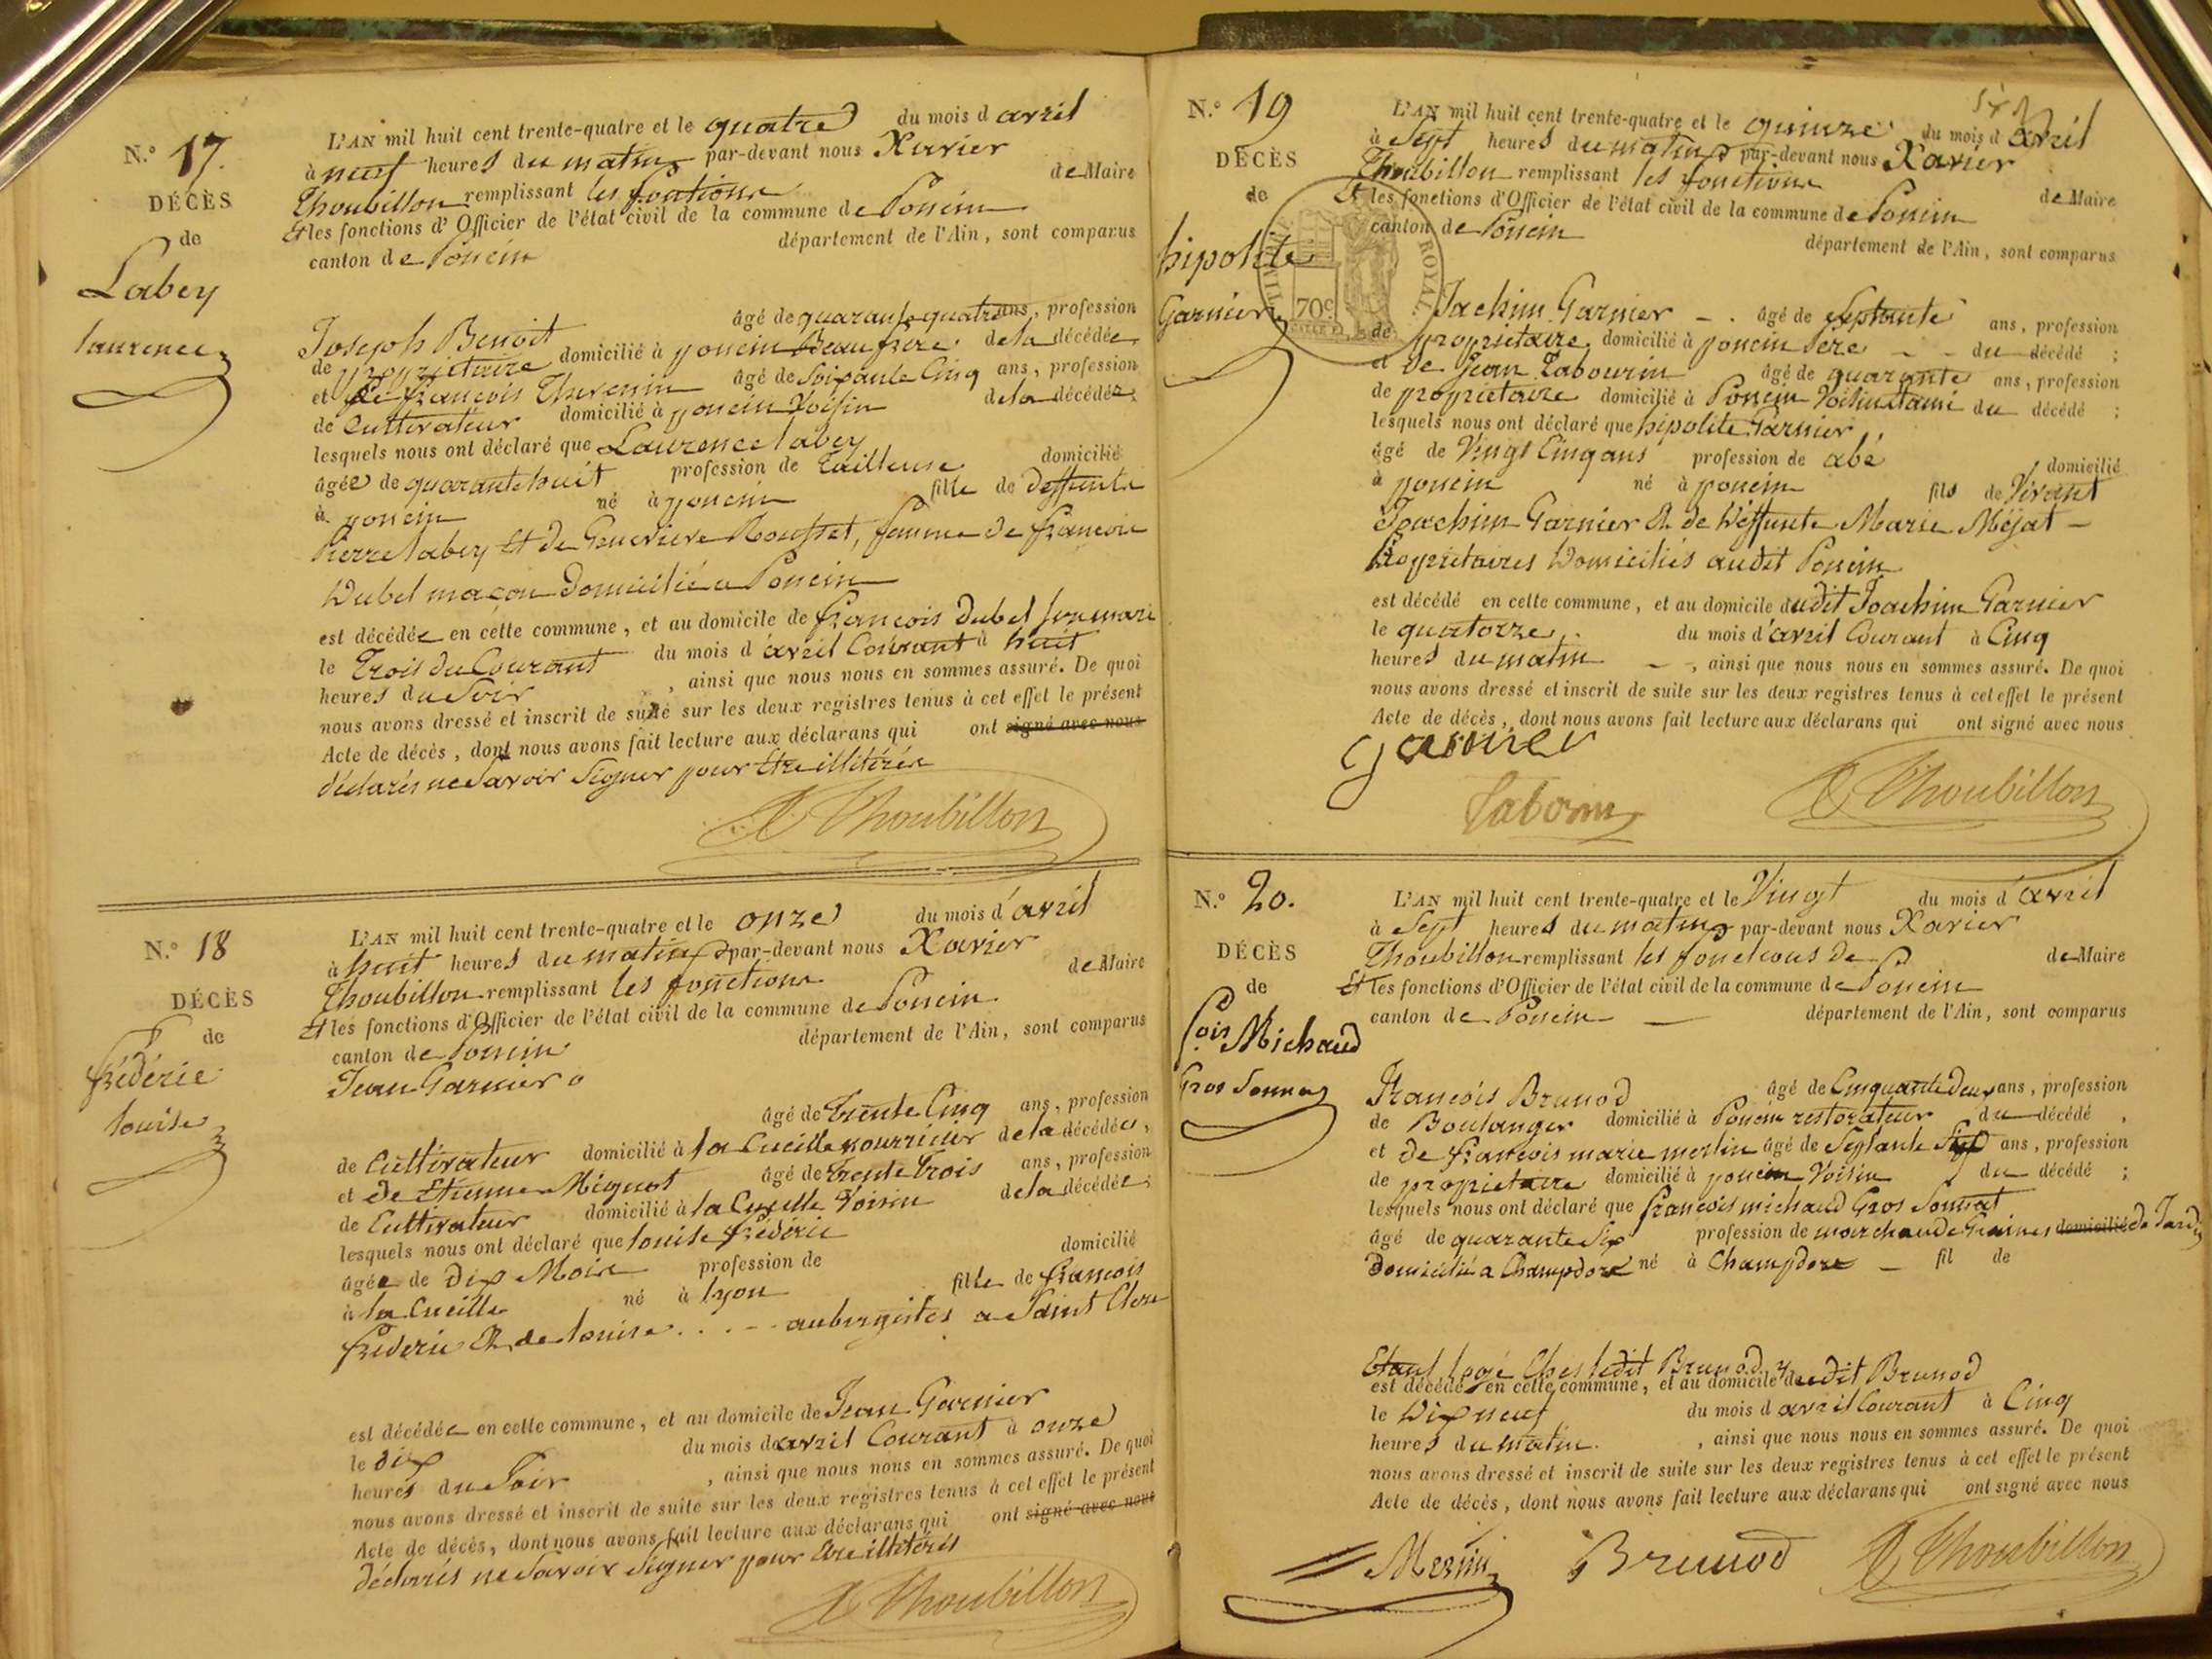 N.° 17.
DÉCÈS
de
Labey
laurence
L'AN mil huit cent trente-quatre et le quatre du mois d avril
à neuf heures du matin par-devant nous Xavier
Thoubillon remplissant les fontions de Maire
Et les fonctions d'Officier de l'état civil de la commune de Poncin
canton de Poncin département de l'Ain, sont comparus
Joseph Benoit âgé de quarante quatre ans, profession
de propriétaire domicilié à poncin Beau frere de la décédée
et de françois Thevenin âgé de Soixante Cinq ans, profession
de Cultivateur domicilié à poncin Voisin de la décédée;
lesquels nous ont déclaré que Laurence labey
âgée de quarante huit profession de tailleuse domicilié
à poncin né à poncin fille de deffunts
Pierre labey Et de Genevieve Rousset, femme de françois
Dubel maçon Domicilié a Poncin
est décédée en cette commune, et au domicile de françois Dubel son mari
le Trois du Courant du mois d avril Courant à huit
heures du Soir, ainsi que nous nous en sommes assuré. De quoi
nous avons dressé et inscrit de suite sur les deux registres tenus à cet effet le présent
Acte de décès, dont nous avons fait lecture aux déclarans qui ont signé avec nous
déclarés ne Savoir Signer pour Etre illitérés
X Thoubillon
N.° 18
DÉCÈS
de
frédéric
louise
L'AN mil huit cent trente-quatre et le onze du mois d'avril
à huit heures du matin par-devant nous Xavier
Thoubillon remplissant les fonctions de Maire
Et les fonctions d'Officier de l'état civil de la commune de Poncin
canton de Poncin département de l'Ain, sont comparus
Jean Garnier
âgé de trente Cinq ans, profession
de Cultivateur domicilié à la Cueille nourricier de la décédée,
et de Etienne Mignot âgé de trente Trois ans, profession
de Cultivateur domicilié à la Cueille Voisin de la décédée;
lesquels nous ont déclaré que louise frédéric
âgée de dix Mois profession de domicilié
à la Cueille né à lyon fille de françois
frédéric Et de louise . . . - - aubergistes a Saint Clere
est décédée en cette commune, et au domicile de Jean Garnier
le dix du mois d avril Courant à onze
heures du Soir, ainsi que nous nous en sommes assuré. De quoi
nous avons dressé et inscrit de suite sur les deux registres tenus à cet effet le présent
Acte de décès, dont nous avons fait lecture aux déclarans qui ont signé avec nous
déclarés ne Savoir Signer pour Etre illitérés
X Thoubillon
N.° 19
DÉCÈS
de
hipolite
Garnier
TIMBRE ROYAL
70c
L'AN mil huit cent trente-quatre et le quinze du mois d avril
à Sept heures du matin par-devant nous Xavier
Thoubillon remplissant les fonctions de Maire
Et les fonctions d'Officier de l'état civil de la commune de Poncin
canton de Poncin département de l'Ain, sont comparus
Jachim Garnier - . âgé de Septante ans, profession
de propriétaire domicilié à poncin Pere - - du décédé;
et de Jean Tabourin âgé de quarante ans, profession
de propriétaire domicilié à Poncin Voisin et ami du décédé;
lesquels nous ont déclaré que hipolite Garnier
âgé de Vingt Cinq ans profession de abé domicilié
à poncin né à poncin fils de Vivant
Joachim Garnier Et de Deffunte Marie Méjat -
Propriétaires Domiciliés audit Poncin
est décédé en cette commune, et au domicile dudit Joachim Garnier
le quatorze du mois d'avril Courant à Cinq
heures du matin - -, ainsi que nous nous en sommes assuré. De quoi
nous avons dressé et inscrit de suite sur les deux registres tenus à cet effet le présent
Acte de décès, dont nous avons fait lecture aux déclarans qui ont signé avec nous
garnier
X Thoubillon
N.° 20.
DÉCÈS
de
fois Michaud
Gros Sonnat
L'AN mil huit cent trente-quatre et le Vingt du mois d'avril
à Sept heures du matin par-devant nous Xavier
Thoubillon remplissant les fonctions de de Maire
Et les fonctions d'Officier de l'état civil de la commune de Poncin
canton de Poncin département de l'Ain, sont comparus
François Brunod âgé de Cinquante deux ans, profession
de Boulanger domicilié à Poncin restorateur du décédé,
et de françois marie merlin âgé de Septante Sept ans, profession
de propriétaire domicilié à poncin Voisin du décédé;
lesquels nous ont déclaré que françois michaud Gros Sonnat
âgé de quarante Six profession de marchand de Graines domicilié de Jardin
Domicilié a Champdore né à Champdore - fil de
Etant logé Ches ledit Brunod
est décédé en cette commune, et au domicile dudit Brunod
le Dix neuf du mois d avril Courant à Cinq
heures du matin., ainsi que nous nous en sommes assuré. De quoi
nous avons dressé et inscrit de suite sur les deux registres tenus à cet effet le présent
Acte de décès, dont nous avons fait lecture aux déclarans qui ont signé avec nous
Brunod X Thoubillon